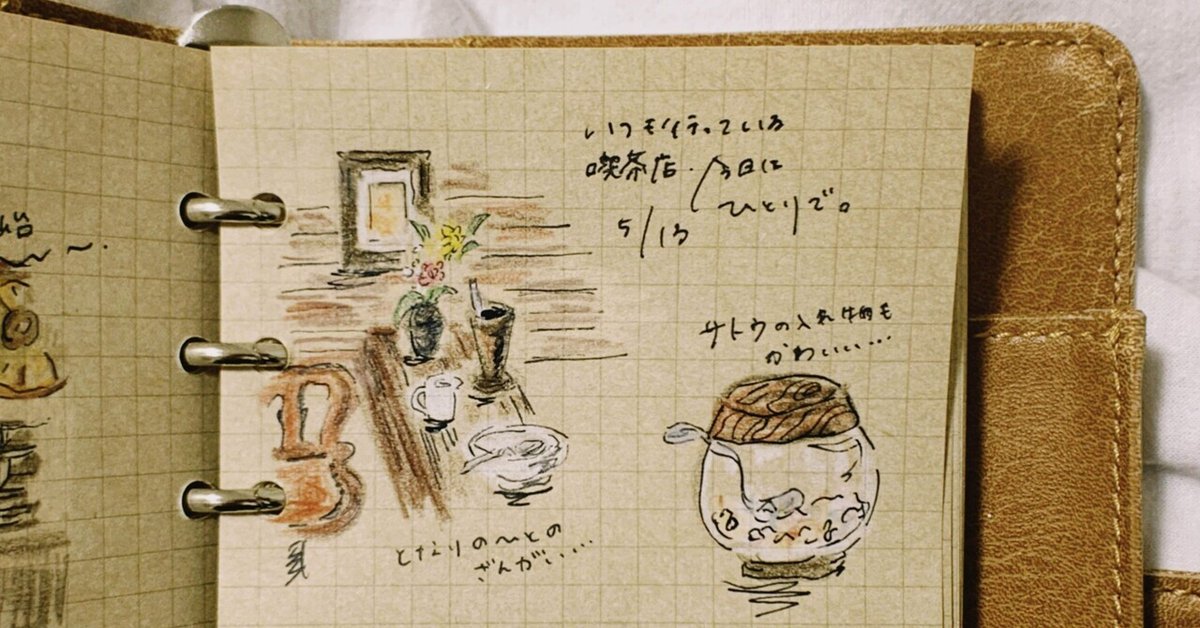 いつも行っている
喫茶店. 今日は
ひとりで。
5/13
サトウの入れ物も
かわいい...
となりのひとの
ざんがい...